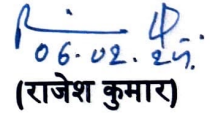 06.02.25.
(राजेश कुमार)